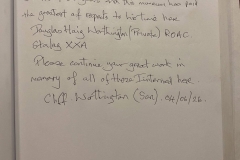 and this museum has paid
the greatest of respects to his time here.
Douglas Haig Worthington (Private) RAOC.
Stalag XXA
Please continue your great work in
memory of all of those Interned here.
Cliff Worthington (Son). 04/06/26.